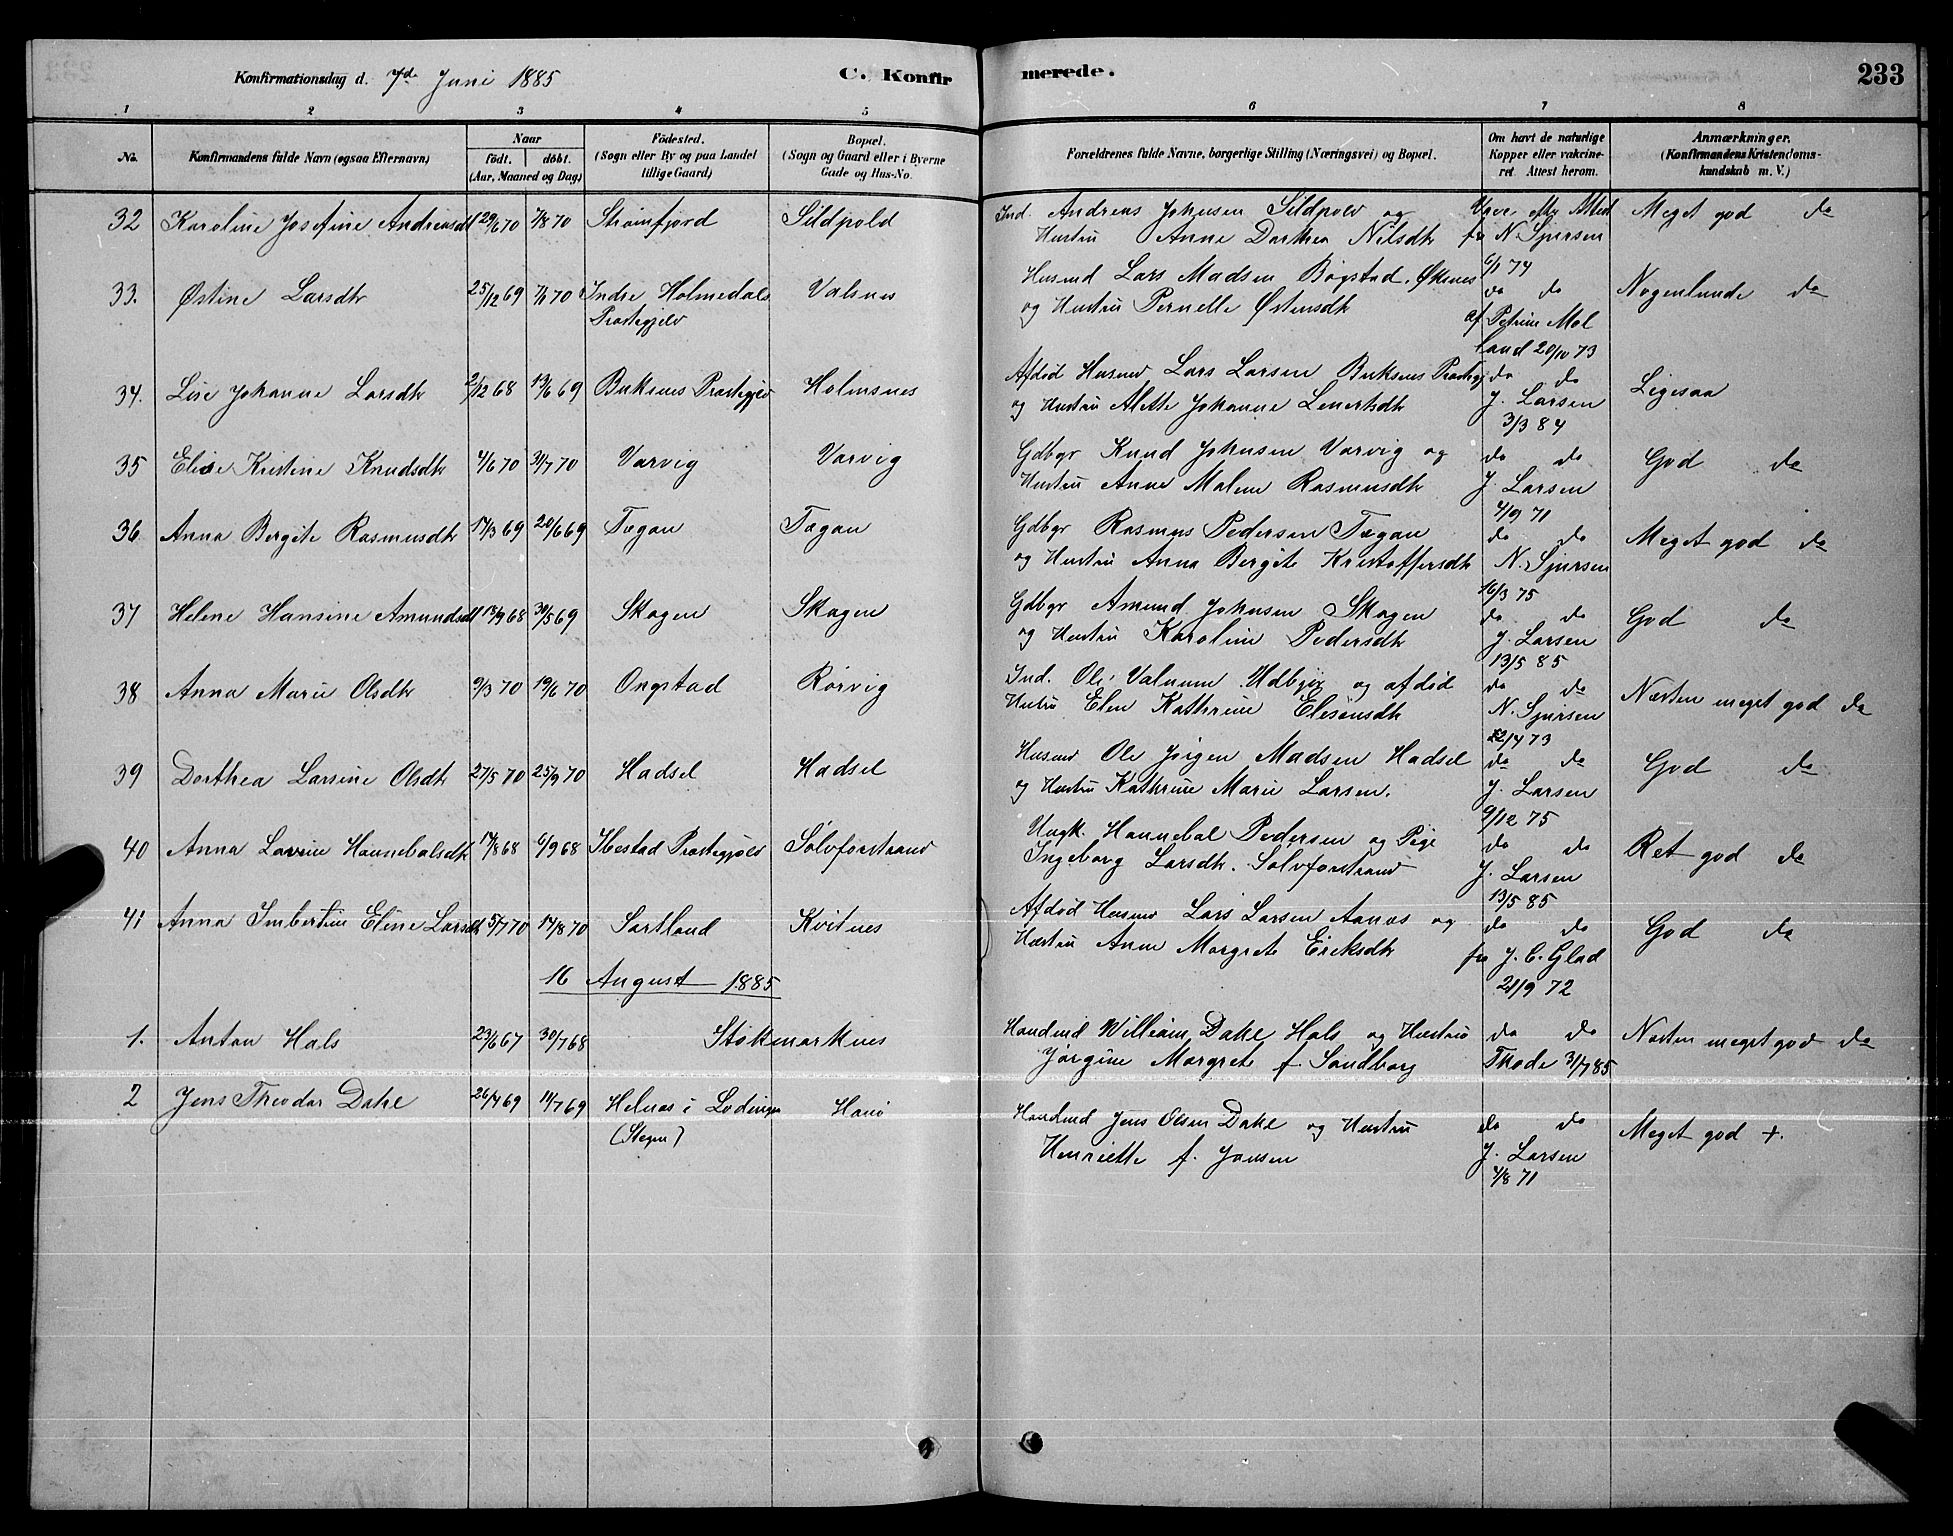 Konfirmationsdag d. 7de Juni 1885 C. Konfirmerede. 233
1 2 3 4 5 6 7 8
No. Konfirmandens fulde Navn (ogsaa Efternavn) Naar födt. döbt. (Aar, Maaned og Dag) Födested. (Sogn eller By og paa Landet tillige Gaard) Bopæl. (Sogn og Gaard eller i Byerne Gade og Hus-No. Forældrenes fulde Navne, borgerlige Stilling (Næringsvei) og Bopæl. Om havt de naturlige Kopper eller vakcineret. Attest herom. Anmærkninger. (Konfirmandens Kristendomskundskab m. V.)
32 Karoline Josefine Andreasdt 29/6 70 7/8 70 Strømfjord Sildpold Ind. Andreas Johnsen Sildpold og Meget god do
Hustru Anne Dorthea Nilsdtr fra N. Sjursen
6/1 74
33. Østine Larsdtr 25/12 69 7/6 70 Indre Holmedals Valsnes Husmd Lars Madsen Bogstad, Øksnes do do Nogenlunde do
Præstegjeld og Hustru Pernelle Østensdtr af Petrine Mol
land 20/10 73
34. Lise Johanne Larsdtr 2/12 68 13/6 69 Buksnes Præstegjeld Holmsnes Afdød Husmd Lars Larsen Buksnes Præstegj do do Ligesaa
og Hustru Alette Johanne Lenertsdtr J. Larsen
3/3 84
35 Elise Kristine Knudsdtr 4/6 70 31/7 70 Varvig Varvig Gdbgr Knud Johnsen Varvig og do do God do
Hustru Anne Malene Rasmusdtr J. Larsen
4/9 71
36. Anna Bergite Rasmusdtr 17/3 69 20/6 69 Tøgan Tøgan Gdbgr Rasmus Pedersen Tøgan do do Meget god do
og Hustru Anna Bergite Kristoffersdtr N. Sjursen
16/3 75
37 Helene Hansine Amundsdt 18/9 68 30/5 69 Skagen Skagen Gdbgr Amund Johnsen Skagen do do God do
og Hustru Karoline Pedersdtr J. Larsen
13/5 85
38 Anna Marie Olsdtr 9/3 70 19/6 70 Ongstad Rørvig Ind. Ole Valnum Udbjør og afdød do do Næsten meget god do
Hustru Elen Kathrine Elesensdtr N. Sjursen
22/4 73
39 Dorthea Larsine Olsdtr 27/5 70 25/9 70 Hadsel Hadsel Husmd Ole Jørgen Madsen Hadsel do do God do
og Hustru Kathrine Marie Larsen. J. Larsen
9/12 75
40 Anna Lovise Hannebalsdtr 17/8 68 6/9 68 Ibestad Præstegjeld Sølvforstrand Ungk. Hannebal Pedersen og Pige do do Ret god do
Ingeborg Larsdtr. Sølvforstrand J. Larsen
13/5 85
41 Anna Imbertine Eline Larsdt 5/7 70 14/8 70 Sortland Kvitnes Afdød Husmd Lars Larsen Aanes og do do God do
Hustru Anne Margrete Eriksdtr fra J. C. Glad
21/9 72
16 August 1885
1. Anton Hals 23/6 67 30/7 68 Stokmarknes Handlmd William Dahl Hals og Hustru do do Næsten meget god do
Jørgine Margrete f. Sandborg Thode 31/7 85
2 Jens Theodor Dahl 26/4 69 11/7 69 Helnes i Lødingen Hanø Handlmd Jens Olsen Dahl og Hustru do do Meget god +.
(Stegen) Henriette f. Jansen J. Larsen
4/8 71